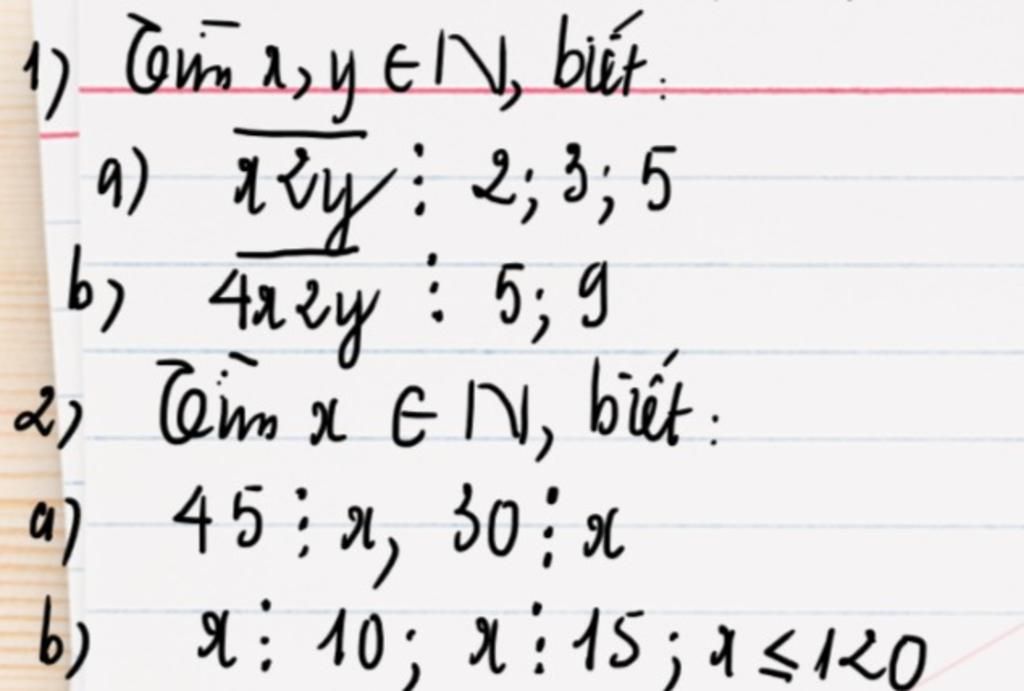 1) Tìm x, y ∈ ℕ, biết:
a) x̅2̅y̅ ⋮ 2; 3; 5
b) 4̅x̅2̅y̅ ⋮ 5; 9
2) Tìm x ∈ ℕ, biết:
a) 45 ⋮ x, 30 ⋮ x
b) x ⋮ 10; x ⋮ 15; x ≤ 120